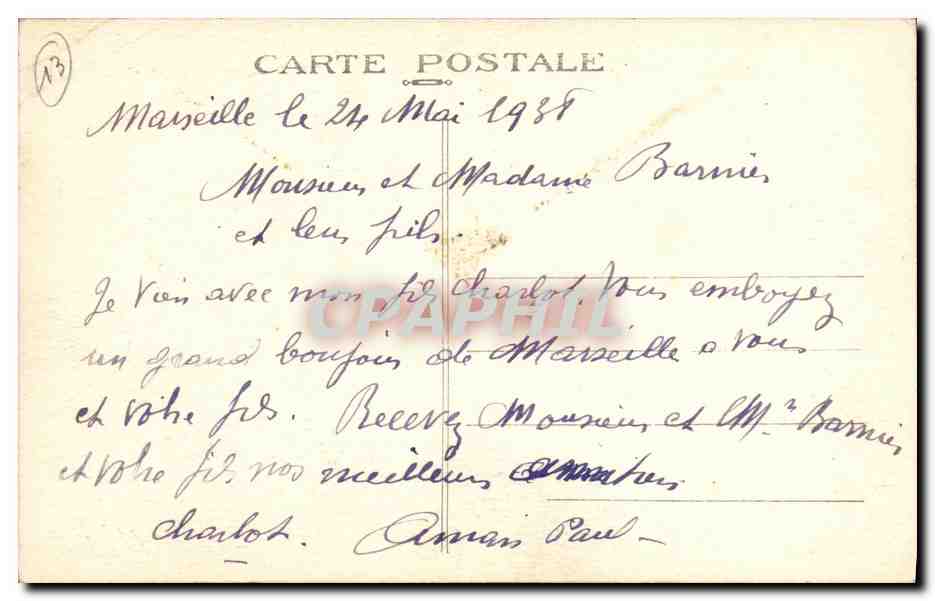 13
CARTE POSTALE
Marseille le 24 Mai 1938
Monsieur et Madame Barnier
et leur fils.
Je vien avec mon fils Charlot, Vous emboyez
CPAPHIL
un grand boujour de Marseille a vous
et votre fils. Recevez Monsieur et Mm Barnier
et votre fils nos meilleurs
Charlot. Aman Paul